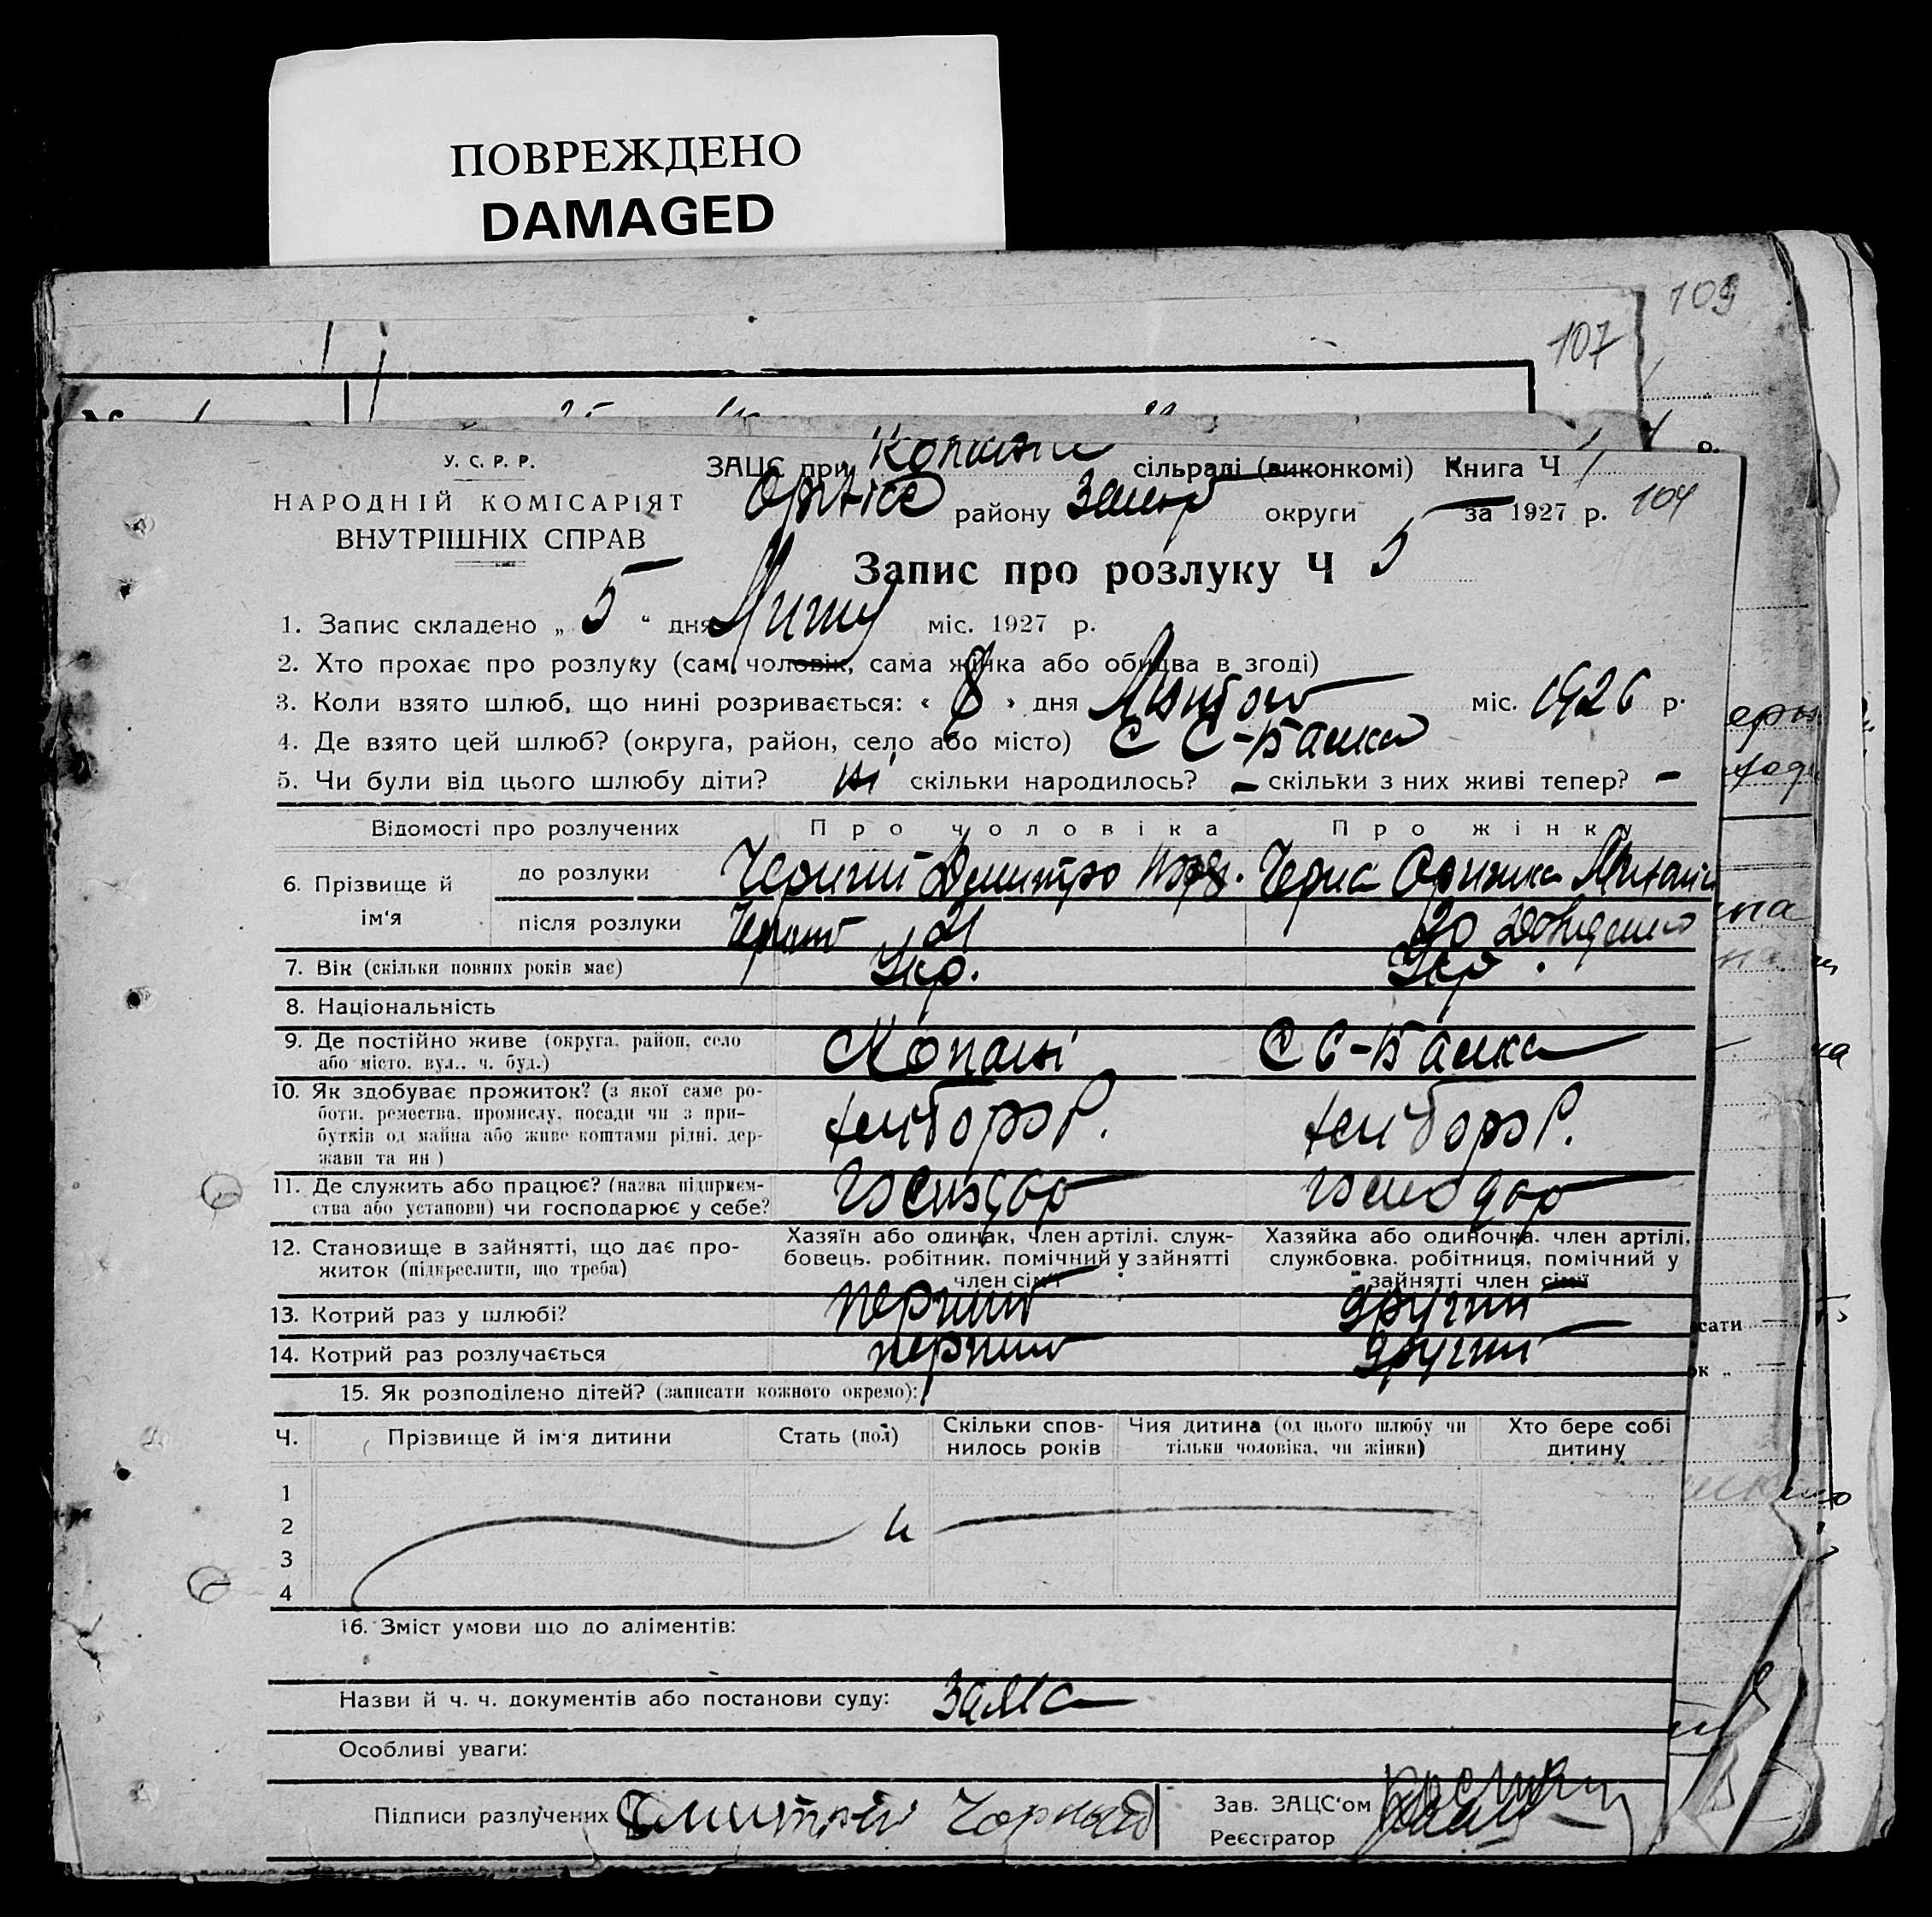 ПОВРЕЖДЕНО
DAMAGED
109
107
У. С. Р. Р.
НАРОДНІЙ КОМІСАРІЯТ
ВНУТРІШНІХ СПРАВ
ЗАЦС при Копані сільраді (виконкомі) Книга Ч 1
району округи за 1927 р. 104
Запис про розлуку Ч 5
1. Запис складено „ 5 “ дня міс. 1927 р.
2. Хто прохає про розлуку (сам чоловік, сама жінка або обидва в згоді)
3. Коли взято шлюб, що нині розривається: « 8 » дня міс. 1926 р.
4. Де взято цей шлюб? (округа, район, село або місто) С С-Балка
5. Чи були від цього шлюбу діти? ні скільки народилось? – скільки з них живі тепер? –
Відомості про розлучених Про чоловіка Про жінку
6. Прізвище й ім'я
до розлуки Черний Дмитро Черна Оришка
після розлуки Черний 21 20
7. Вік (скільки повних років має) Укр. Укр.
8. Національність
9. Де постійно живе (округа, район, село або місто, вул., ч. буд.) Копані С С-Балка
10. Як здобуває прожиток? (з якої саме роботи, ремества, промислу, посади чи з прибутків од майна або живе коштами рідні, держави та ин) хліборо Р. хліборо Р.
11. Де служить або працює? (назва підприємства або установи) чи господарює у себе? господар господар
12. Становище в зайнятті, що дає прожиток (підкреслити, що треба)
Хазяїн або одинак, член артілі, службовець, робітник, помічний у зайнятті член сім'ї
Хазяйка або одиночка, член артілі, службовка, робітниця, помічний у зайнятті член сімї
13. Котрий раз у шлюбі? перший другий
14. Котрий раз розлучається перший другий
15. Як розподілено дітей? (записати кожного окремо):
Ч. Прізвище й ім'я дитини Стать (пол) Скільки сповнилось років Чия дитина (од цього шлюбу чи тільки чоловіка, чи жінки) Хто бере собі дитину
1
2
3
4
16. Зміст умови що до аліментів:
Назви й ч. ч. документів або постанови суду: заява
Особливі уваги:
Підписи разлучених Дмитрий Чорный
Зав. ЗАЦС'ом
Реєстратор